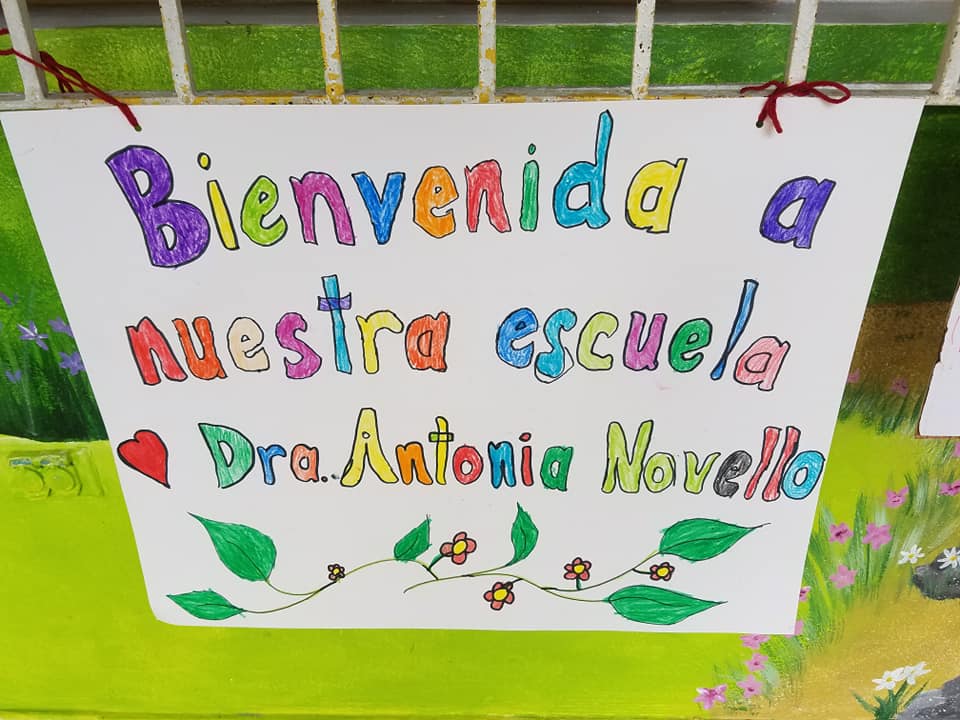 Bienvenida a
nuestra escuela
Dra. Antonia Novello